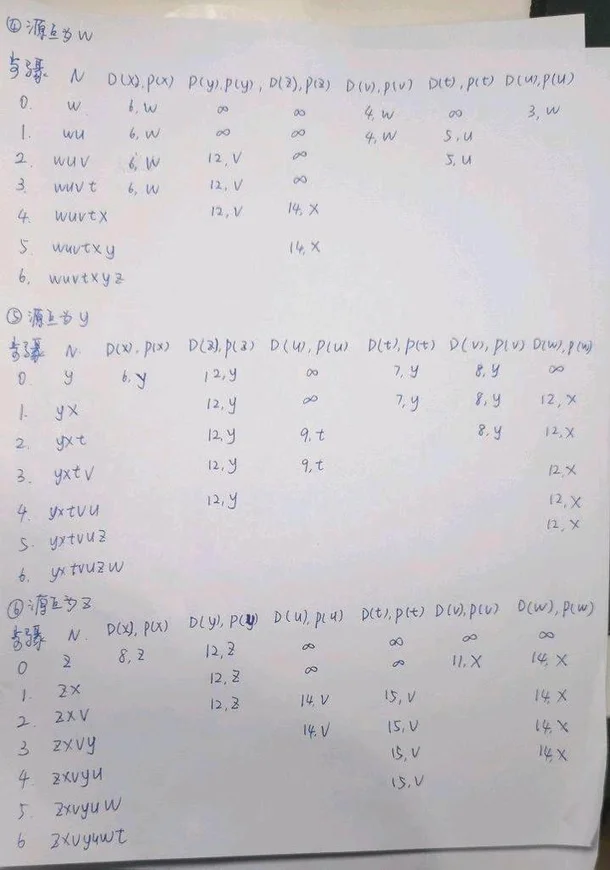 ④ 源点为w
步骤 N D(x),p(x) D(y),p(y), D(z),p(z) D(v),p(v) D(t),p(t) D(u),p(u)
0. w 6,w ∞ ∞ 4,w ∞ 3,w
1. wu 6,w ∞ ∞ 4,w 5,u
2. wuv 6,w 12,v ∞ 5,u
3. wuvt 6,w 12,v ∞
4. wuvtx 12,v 14,x
5 wuvtxy 14,x
6. wuvtxyz
⑤ 源点为y
步骤 N. D(x),p(x) D(z),p(z) D(u),p(u) D(t),p(t) D(v),p(v) D(w),p(w)
0. y 6,y 12,y ∞ 7,y 8,y ∞
1. yx 12,y ∞ 7,y 8,y 12,x
2. yxt 12,y 9,t 8,y 12,x
3. yxtv 12,y 9,t 12,x
4. yxtvu 12,y 12,x
5. yxtvuz 12,x
6. yxtvuzw
⑥ 源点为z
步骤 N. D(x),p(x) D(y),p(y) D(u),p(u) D(t),p(t) D(v),p(v) D(w),p(w)
0 z 8,z 12,z ∞ ∞ ∞ ∞
1. zx 12,z ∞ ∞ 11,x 14,x
2. zxv 12,z 14,v 15,v 14,x
3 zxvy 14,v 15,v 14,x
4. zxvyu 15,v 14,x
5. zxvyuw 15,v
6 zxvyuwt